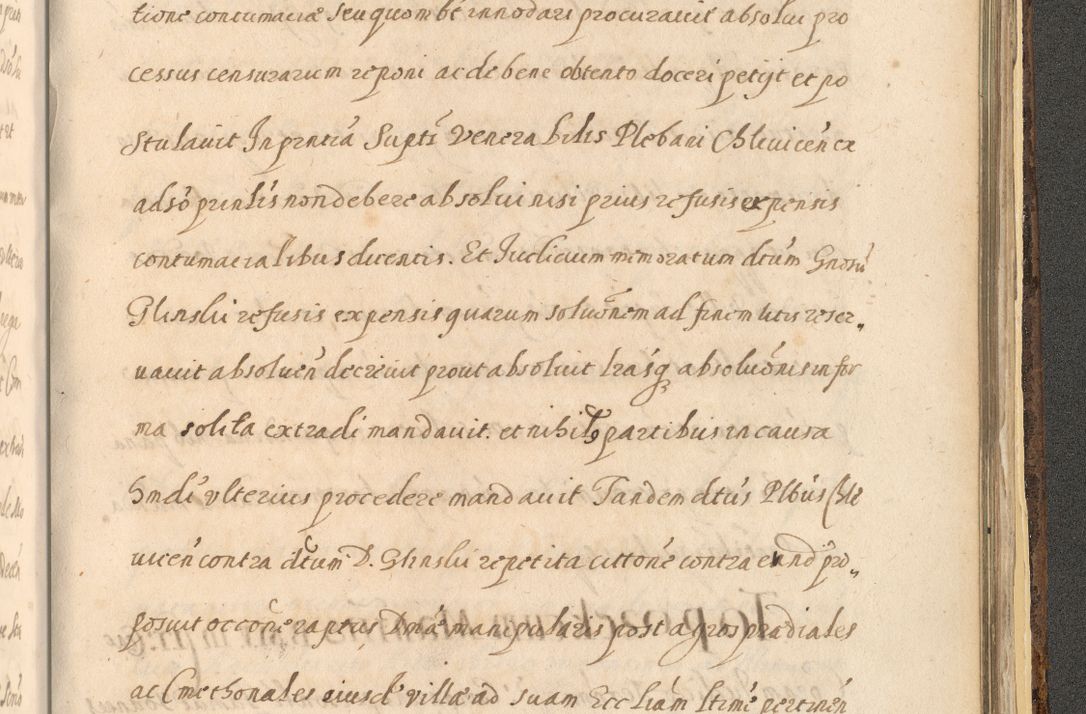 tione contumaciæ seu quom̃ bt innodari procuravit absolui pro
cessus censurarum reponi ac de bene obtento doceri petijt et po
stulavit In pñtia Supti Venerabilis Plebani Chlivicen ex
adso pñtis non debere absolui nisi prius refusis expensis
contumacialibus dicentis. Et Judicium memoratum dtum Gnosu
Glinski refusis expensis quarum soluõnem ad finem litis reser„
uauit absoluen decrevit prout absoluit lrasq absoluõnis in for
ma solita extradi mandavit. et nihil9 partibus in causa
hmdi ulterius procedere mandavit Tandem dtus Plbus Chle
uicen contra dtum D. Glinski repetita cittone contra eund pro„
posuit occõne raptus Dnæ manipularis post agros prædiales
ac Cmethonales eiusd villæ ad suam Eccliam ltime pertinen